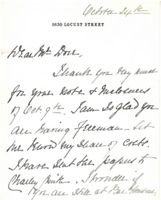 October 24th
5830 LOCUST STREET
Dear Mr. Dorr,
Thank you very much
for your note & enclosures
of Oct. 9th. I am so glad you
are having Freeman. Let
me know my share of costs.
I have sent the papers to
Charley Smith. I wonder if
you are still at Bar Harbor